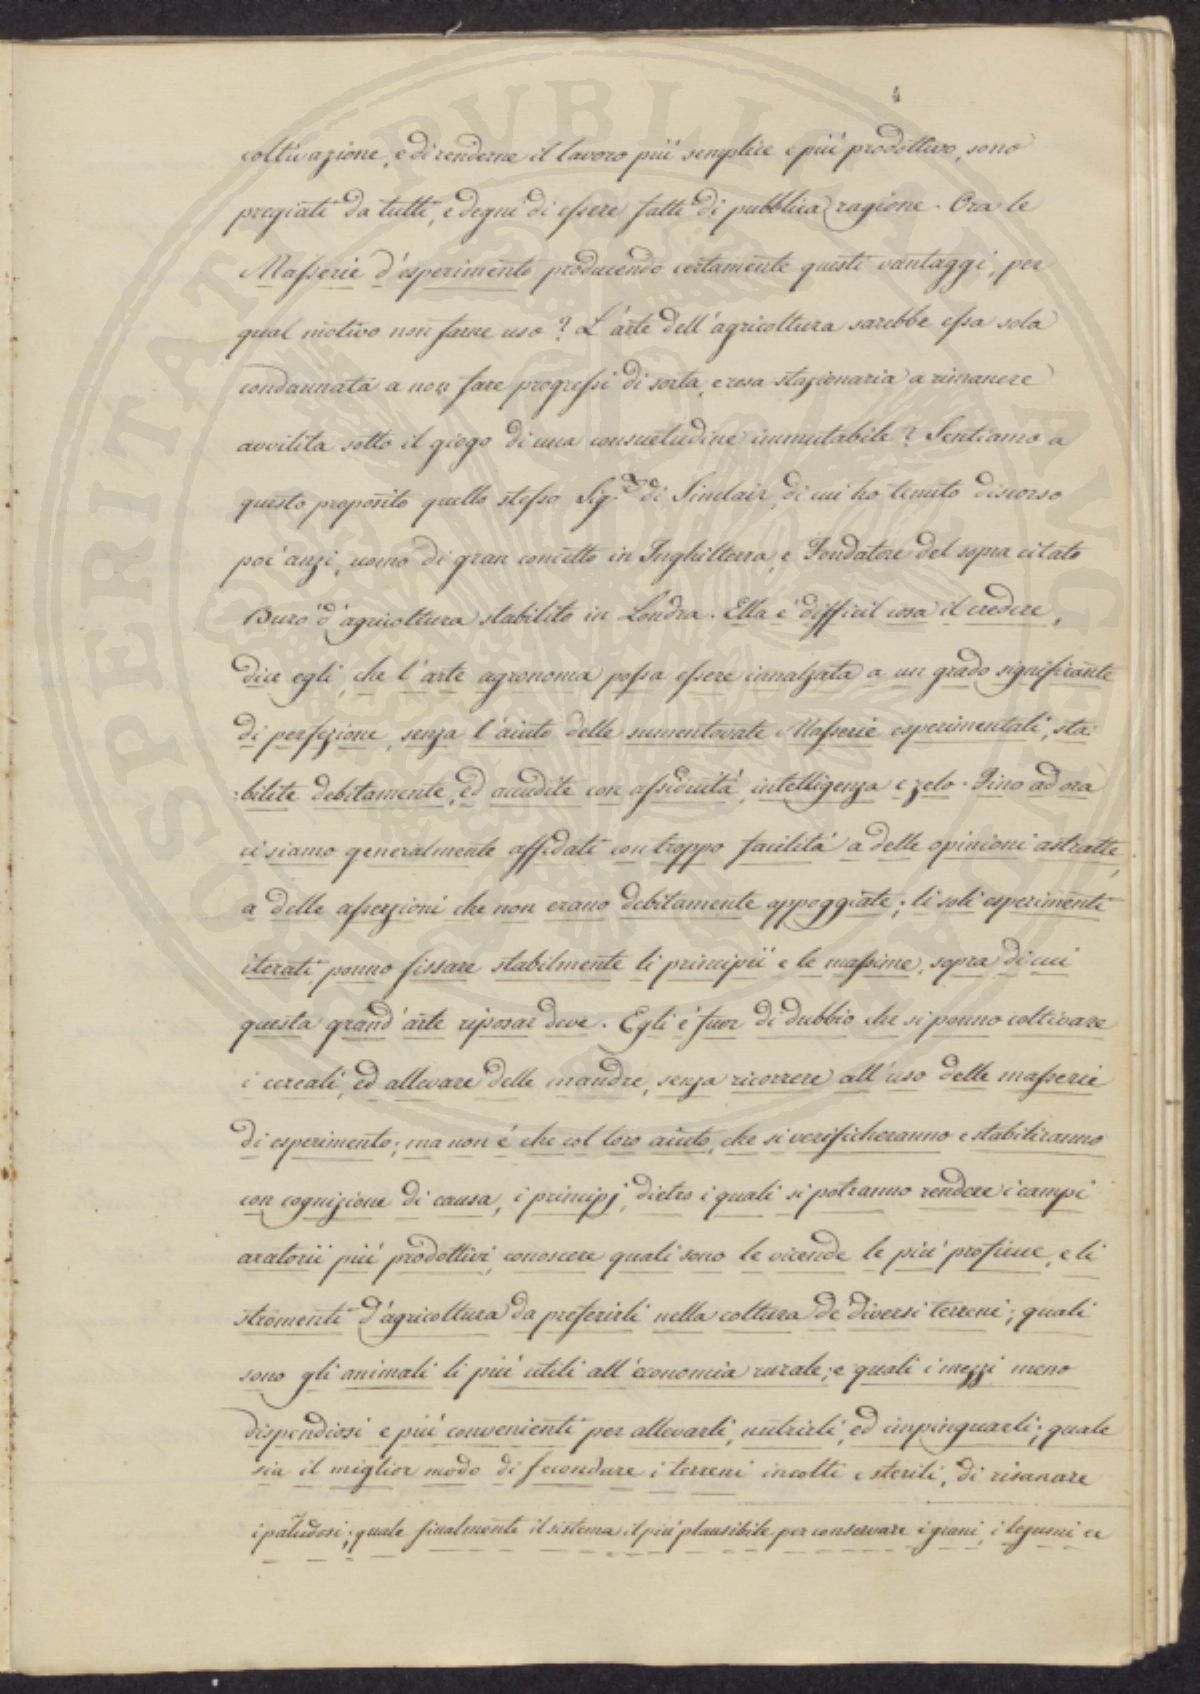 4
coltivazione, e di renderne il lavoro più semplice e più prodottivo, sono
pregiati da tutti, e degni di essere fatti di pubblica ragione. Ora le
Masserie d'esperimento producendo certamente questi vantaggi, per
qual motivo non farne uso? L'arte dell'agricoltura sarebbe essa sola
condannata a non fare progressi di sorta, e resa stazionaria a rimanere
avvilita sotto il giogo di una consuetudine immutabile? Sentiamo a
questo proposito quello stesso Sig.r di Sinclair, di cui ho tenuto discorso
poc'anzi, uomo di gran concetto in Inghilterra, e Fondatore del sopra citato
Burò d'agricoltura stabilito in Londra. Ella è difficil cosa il credere,
dice egli, che l'arte agronoma possa essere innalzata a un grado significante
di perfezione, senza l'aiuto delle summentovate Masserie esperimentali, sta:
:bilite debitamente, ed accudite con assiduità, intelligenza e zelo. Fino ad ora
ci siamo generalmente affidati con troppo facilità a delle opinioni astratte,
a delle asserzioni che non erano debitamente appoggiate; li soli esperimenti
iterati, ponno fissare stabilmente li principii e le massime, sopra di cui
questa grand'arte riposar deve. Egli è fuor di dubbio che si ponno coltivare
i cereali, ed allevare delle mandre, senza ricorrere all'uso delle masserie
di esperimento; ma non è che col loro aiuto, che si verificheranno e stabiliranno
con cognizione di causa, i principj, dietro i quali si potranno rendere i campi
aratorii più prodottivi, conoscere quali sono le vicende le più proficue, e li
stromenti d'agricoltura da preferirli nella coltura de' diversi terreni; quali
sono gli animali li più utili all'economia rurale; e quali i mezzi meno
dispendiosi e più convenienti per allevarli, nutrirli, ed impinguarli; quale
sia il miglior modo di fecondare i terreni incolti e sterili, di risanare
i paludosi; quale finalmente il sistema il più plausibile per conservare i grani, i legumi ec
SPERITATI PUBLICAE AUG